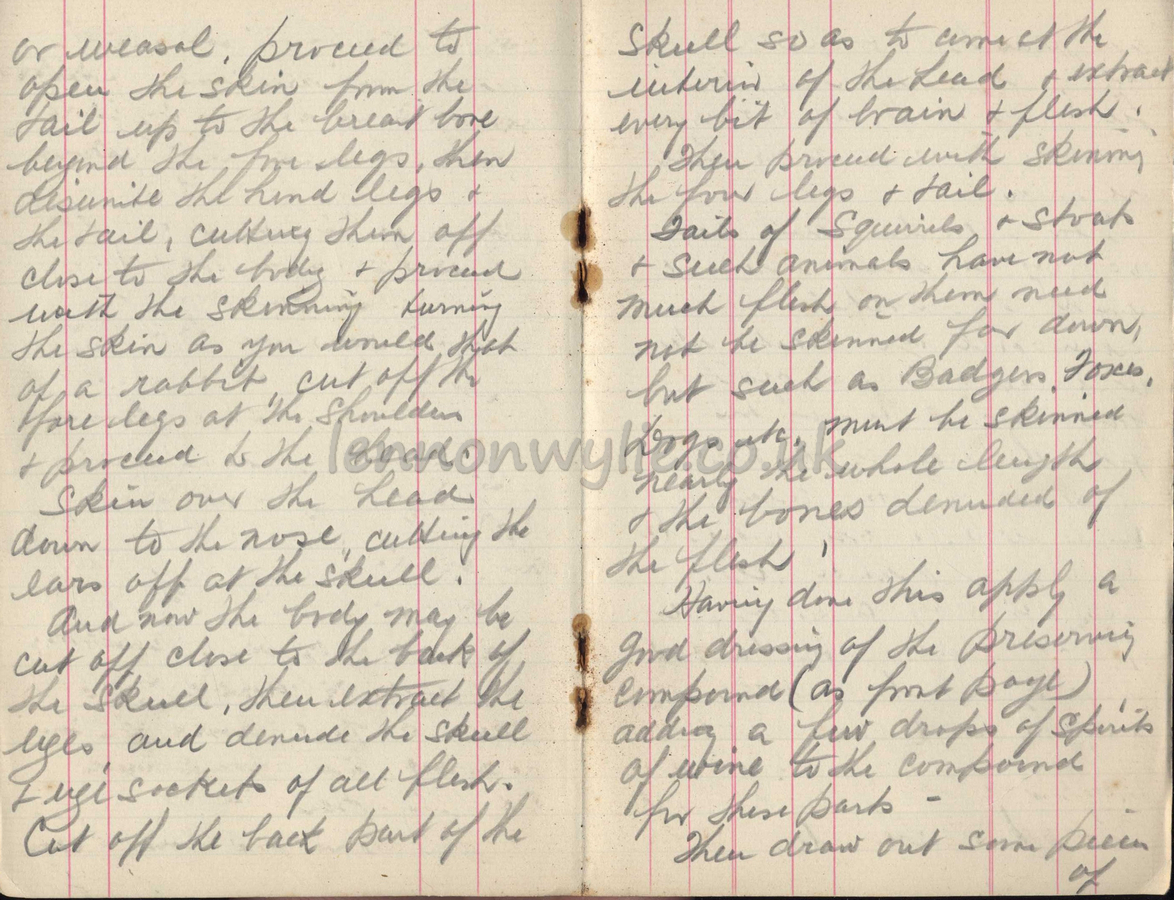 or weasol, proceed to
open the skin from the
tail up to the breast bone
beyond the fore legs, then
disunite the hind legs &
the tail, cutting them off
close to the body & proceed
with the skinning turning
the skin as you would that
of a rabbit, cut off the
fore legs at the shoulders
& proceed to the head.
Skin over the head
down to the nose, cutting the
ears off at the skull.
And now the body may be
cut off close to the back of
the skull, then extract the
eyes, and denude the skull
& eye sockets of all flesh.
Cut off the back part of the
skull so as to come at the
interior of the head & extract
every bit of brain & flesh.
Then proceed with skinning
the four legs & tail.
Tails of Squirrels & Stoats
& such animals have not
much flesh on them need
not be skinned far down,
but such as Badgers, Foxes,
Dogs etc. must be skinned
nearly the whole length
& the bones denuded of
the flesh!
Having done this apply a
good dressing of the preserving
compound (as front page)
adding a few drops of spirits
of wine to the compound
for these parts -
Then draw out some pieces
of
lennonwylie.co.uk